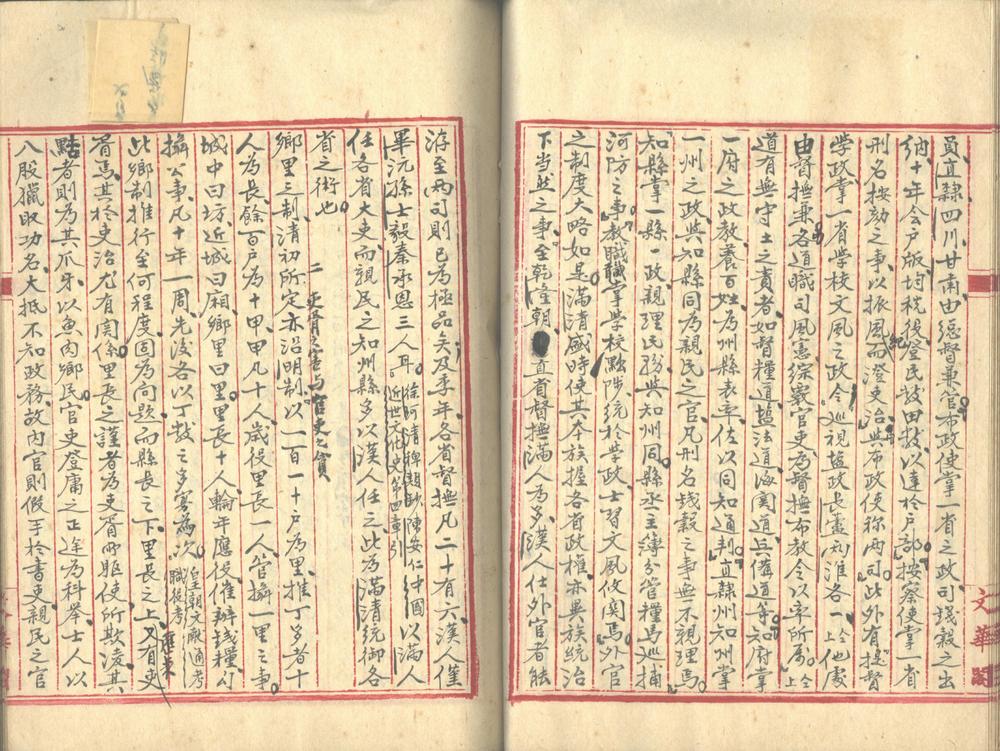 員直隸四川甘肅由總督兼管布政使掌一省之政司錢穀之出
納十年会戶版均税役登民数田数以達於戶部按蔡使掌一省
刑名按劾之事以振風紀而澄吏治與布政使称兩司此外有提督
学政掌一省学校文風之政令巡視塩政長盧兩淮各一全上他處
由督撫兼各道職司風憲綜覈官吏為督撫布教令以率所屬全上
道有無守土之責者如督糧道塩法道海関道兵備道等知府掌
一府之政教養百姓為州縣表率佐以同知通判直隸州知州掌
一州之政與知縣同為親民之官凡刑名錢穀之事無不親理焉
知縣掌一縣政親理民務與知州同縣丞主簿分管糧馬巡捕
河防之事教職掌学校黜陟統於学政士習文風攸関焉外官
之制度大略如是滿清盛時使其本族握各省政權亦異族統治
下当然之事至乾隆朝直省督撫滿人為多漢人仕外官者能
洊至兩司則已為極品矣及季年各省督撫凡二十有六漢人僅
畢沅孫士毅秦承恩三人耳徐珂清稗類鈔陳安仁中國近世文化史第四章引以滿人
任各省大吏而親民之知州縣多以漢人任之此為滿清統御各
省之術也
二 吏胥之害与官吏之貪
鄉里之制清初所定亦沿明制以一百一十戶為里推丁多者十
人為長餘百戶為十甲甲凡十人歲役里長一人管攝一里之事
城中曰坊近城曰廂鄉里曰里里長十人輪年應役催辦錢糧勾
攝公事凡十年一周先後各以丁数之多寡為次皇朝文献通考職役考
此鄉制推行至何程度固為問題而縣長之下里長之上又有吏
胥焉其於吏治尤有関係里長之謹者為吏胥所駆使所欺凌其
黠者則為其爪牙以魚肉鄉民官吏登庸之正途為科举士人以
八股獵取功名大抵不知政務故內官則假手於書吏親民之官
文華閣